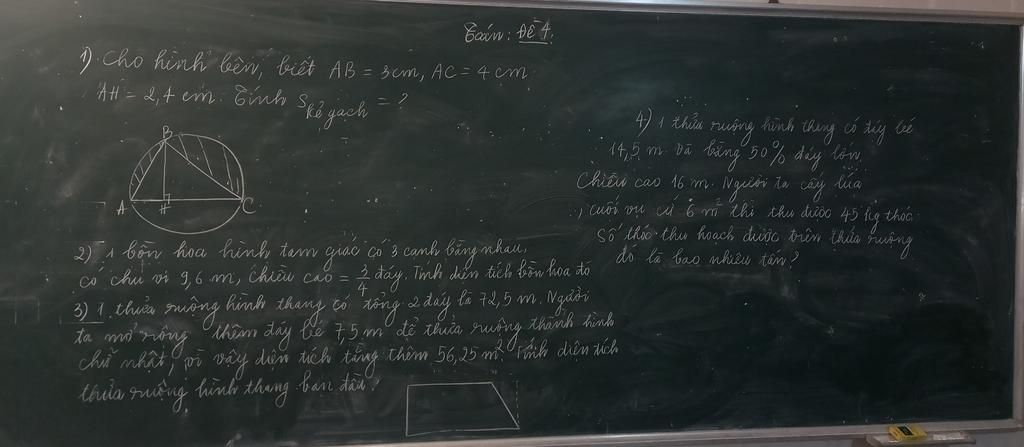 Toán: Đề 4.
1) Cho hình bên, biết AB = 3cm, AC = 4cm
AH = 2,4 cm. Tính S kẻ gạch = ?
B
A H C
2) 1 bồn hoa hình tam giác có 3 cạnh bằng nhau,
có chu vi 9,6 m, chiều cao = 3/4 đáy. Tính diện tích bồn hoa đó
3) 1 thửa ruộng hình thang có tổng 2 đáy là 72,5 m. Người
ta mở rộng thêm đáy bé 7,5 m để thửa ruộng thành hình
chữ nhật, vì vậy diện tích tăng thêm 56,25 m². Tính diện tích
thửa ruộng hình thang ban đầu?
4) 1 thửa ruộng hình thang có đáy bé
14,5 m và bằng 50% đáy lớn.
Chiều cao 16 m. Người ta cấy lúa
, cuối vụ cứ 6 m² thì thu được 45 kg thóc.
Số thóc thu hoạch được trên thửa ruộng
đó là bao nhiêu tấn?